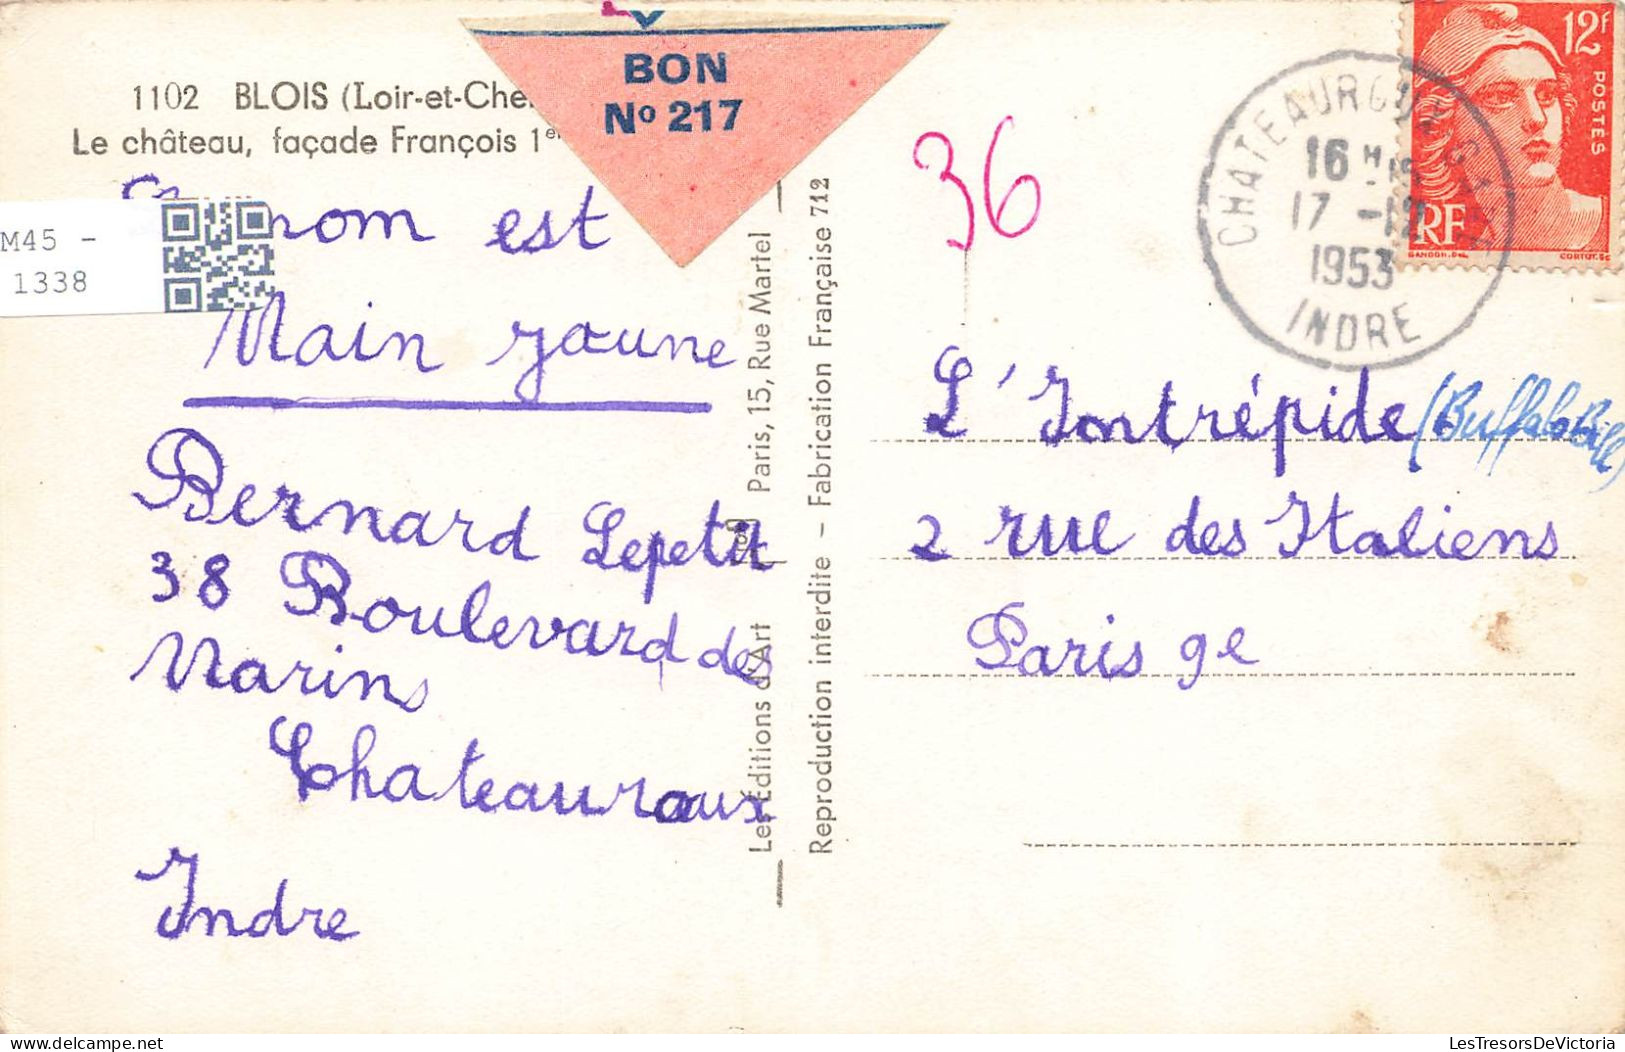 1102 BLOIS (Loir-et-Che
Le château, façade François 1er
BON
No 217
M45 -
1338
nom est
Main jaune
Bernard Lepetit
38 Boulevard des
Marins
Chateauroux
Indre
Les Éditions d'Art
Paris, 15, Rue Martel
Reproduction interdite - Fabrication Française 712
36
CHATEAUROUX
16 H
17 -12
1953
INDRE
12f
POSTES
RF
GANDON.Del.
CORTOT.Sc
L'Intrépide (Buffalo Bill
2 rue des Italiens
Paris 9e
delcampe.net
LesTresorsDeVictoria